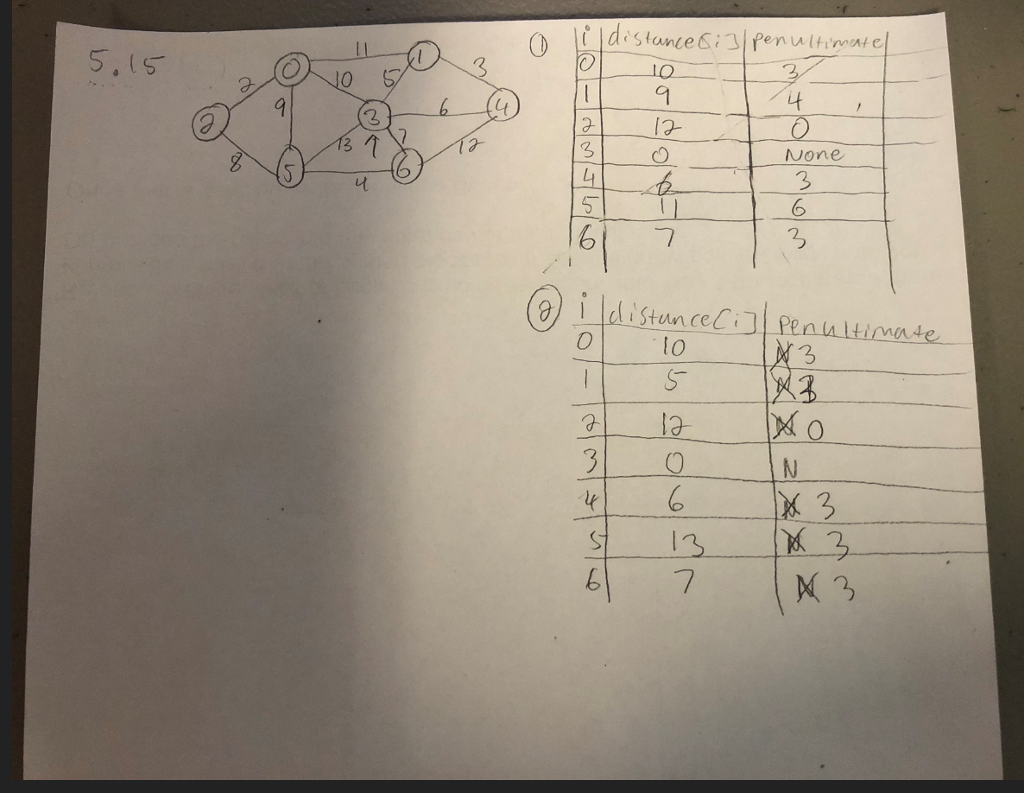 5.15
11
0
1
2
10
5
3
9
2
3
6
4
8
13
9
7
12
5
4
6
① i distance[i] penultimate
0 10 3
1 9 4
2 12 0
3 0 None
4 6 3
5 11 6
6 7 3
② i distance[i] penultimate
0 10 N 3
1 5 N 3
2 12 N 0
3 0 N
4 6 N 3
5 13 N 3
6 7 N 3